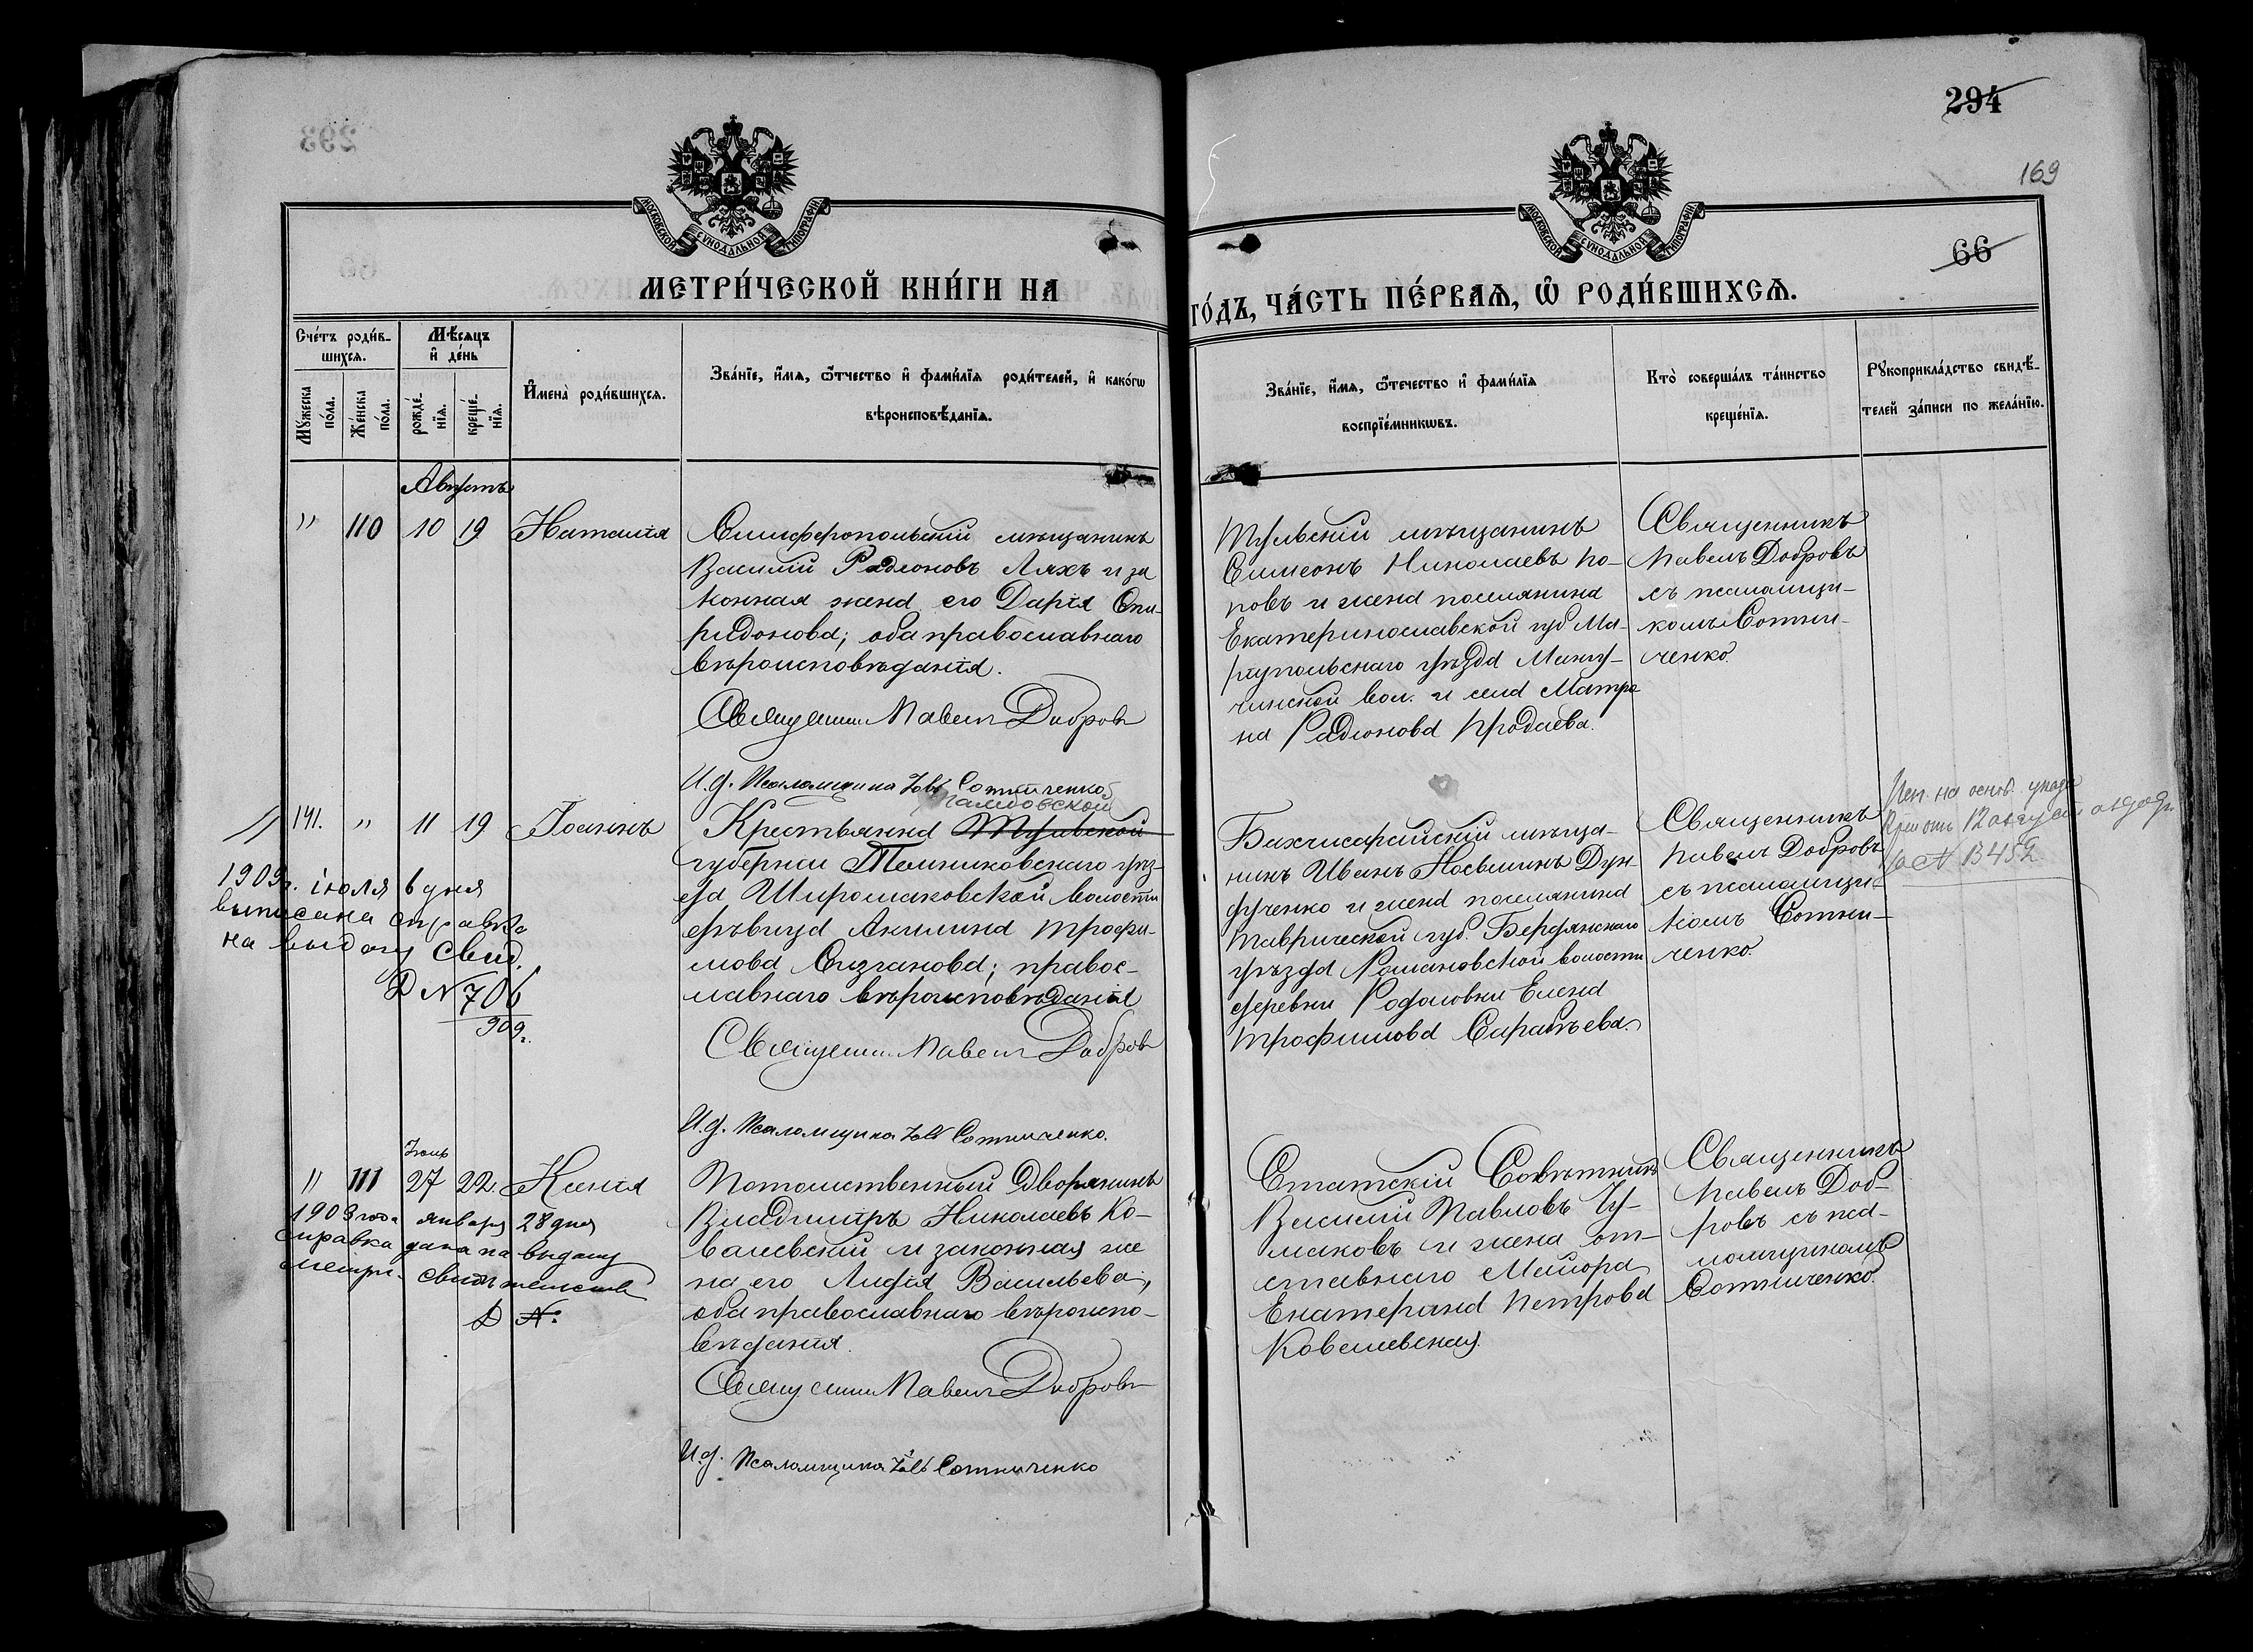 294
169
66
МОСКОВСКОЙ СѴНОДАЛЬНОЙ ТИПОГРАФІИ
МОСКОВСКОЙ СѴНОДАЛЬНОЙ ТИПОГРАФІИ
МЕТРИ́ЧЕСКОЙ КНИ́ГИ НА
ГО́ДЪ, ЧА́СТЬ ПЕ́РВАѦ, Ѽ РОДИ́ВШИХСѦ.
Сче́тъ роди́в-
шихсѧ.
Мꙋжеска по́ла.
Же́нска по́ла.
Мѣсѧцъ
и҆ де́нь
рожде́-
нїѧ.
креще́-
нїѧ.
И҆мена̀ роди́вшихсѧ.
Зва́нїе, и҆́мѧ, ѻ҆́тчество и҆ фами́лїѧ роди́телей, и҆ како́гѡ
вѣроисповѣ́данїѧ.
Зва́нїе, и҆́мѧ, ѻ҆́течество и҆ фами́лїѧ
воспрїе́мникѡвъ.
Кто̀ соверша́лъ та́инство
креще́нїѧ.
Рꙋкоприкла́дство свидѣ́-
телей за́писи по жела́нїю.
Августъ
" 110 10 19 Наталія
Симферопольскій мѣщанинъ
Василій Радіоновъ Ляхъ и за
конная жена его Дарія Спи-
ридонова; оба православнаго
вѣроисповѣданія.
Священник Павелъ Добровъ
И.д. Псаломщика Іовъ Сотниченко
Тульскій мѣщанинъ
Симеонъ Николаевъ По-
повъ и жена поселянина
Екатеринославской губ Ма-
ріупольскаго уѣзда Мангу-
шской вол. и села Матро
на Радіонова Продаева.
Священникъ
Павелъ Добровъ
съ псаломщи-
комъ Сотни-
ченко.
141. " 11 19 Іоаннъ
Тамбовской
Крестьянка Тульской
губерніи Темниковскаго уѣз-
да Широмасовской волости
дѣвица Акилина Трофи-
мова Сизганова; правос-
лавнаго вѣроисповѣданія
Священник Павелъ Добровъ
И.д. Псаломщика Іовъ Сотниченко.
Бахчисарайскій мѣща-
нинъ Иванъ Косьминъ Дун-
дученко и жена поселянина
Таврической губ. Бердянскаго
уѣзда Романовской волости
деревни Родоловки Елена
Трофимова Сарабѣева.
Священникъ
Павелъ Добровъ
съ псаломщи-
комъ Сотни-
ченко.
на основ. указа
отъ 12 августа
за № 13452
1909г. іюля 6 дня
выписана справка
на выдачу свид.
Д №706
909г.
Іюнь
" 111 27 22 Ксенія
Потомственный Дворянинъ
Владиміръ Николаевъ Ко-
валевскій и законная же
на его Лидія Васильева,
оба православнаго вѣроиспо-
вѣданія.
Священник Павелъ Добровъ
И.д. Псаломщика Іовъ Сотниченко
Статскій Совѣтникъ
Василій Павловъ Чу-
маковъ и жена от-
ставнаго Маіора
Екатерина Петрова
Ковалевская.
Священникъ
Павелъ Доб-
ровъ съ пса-
ломщикомъ
Сотниченко.
1903 года января 28 дня
справка дана на выдачу
метри. свидѣтельства
Д №